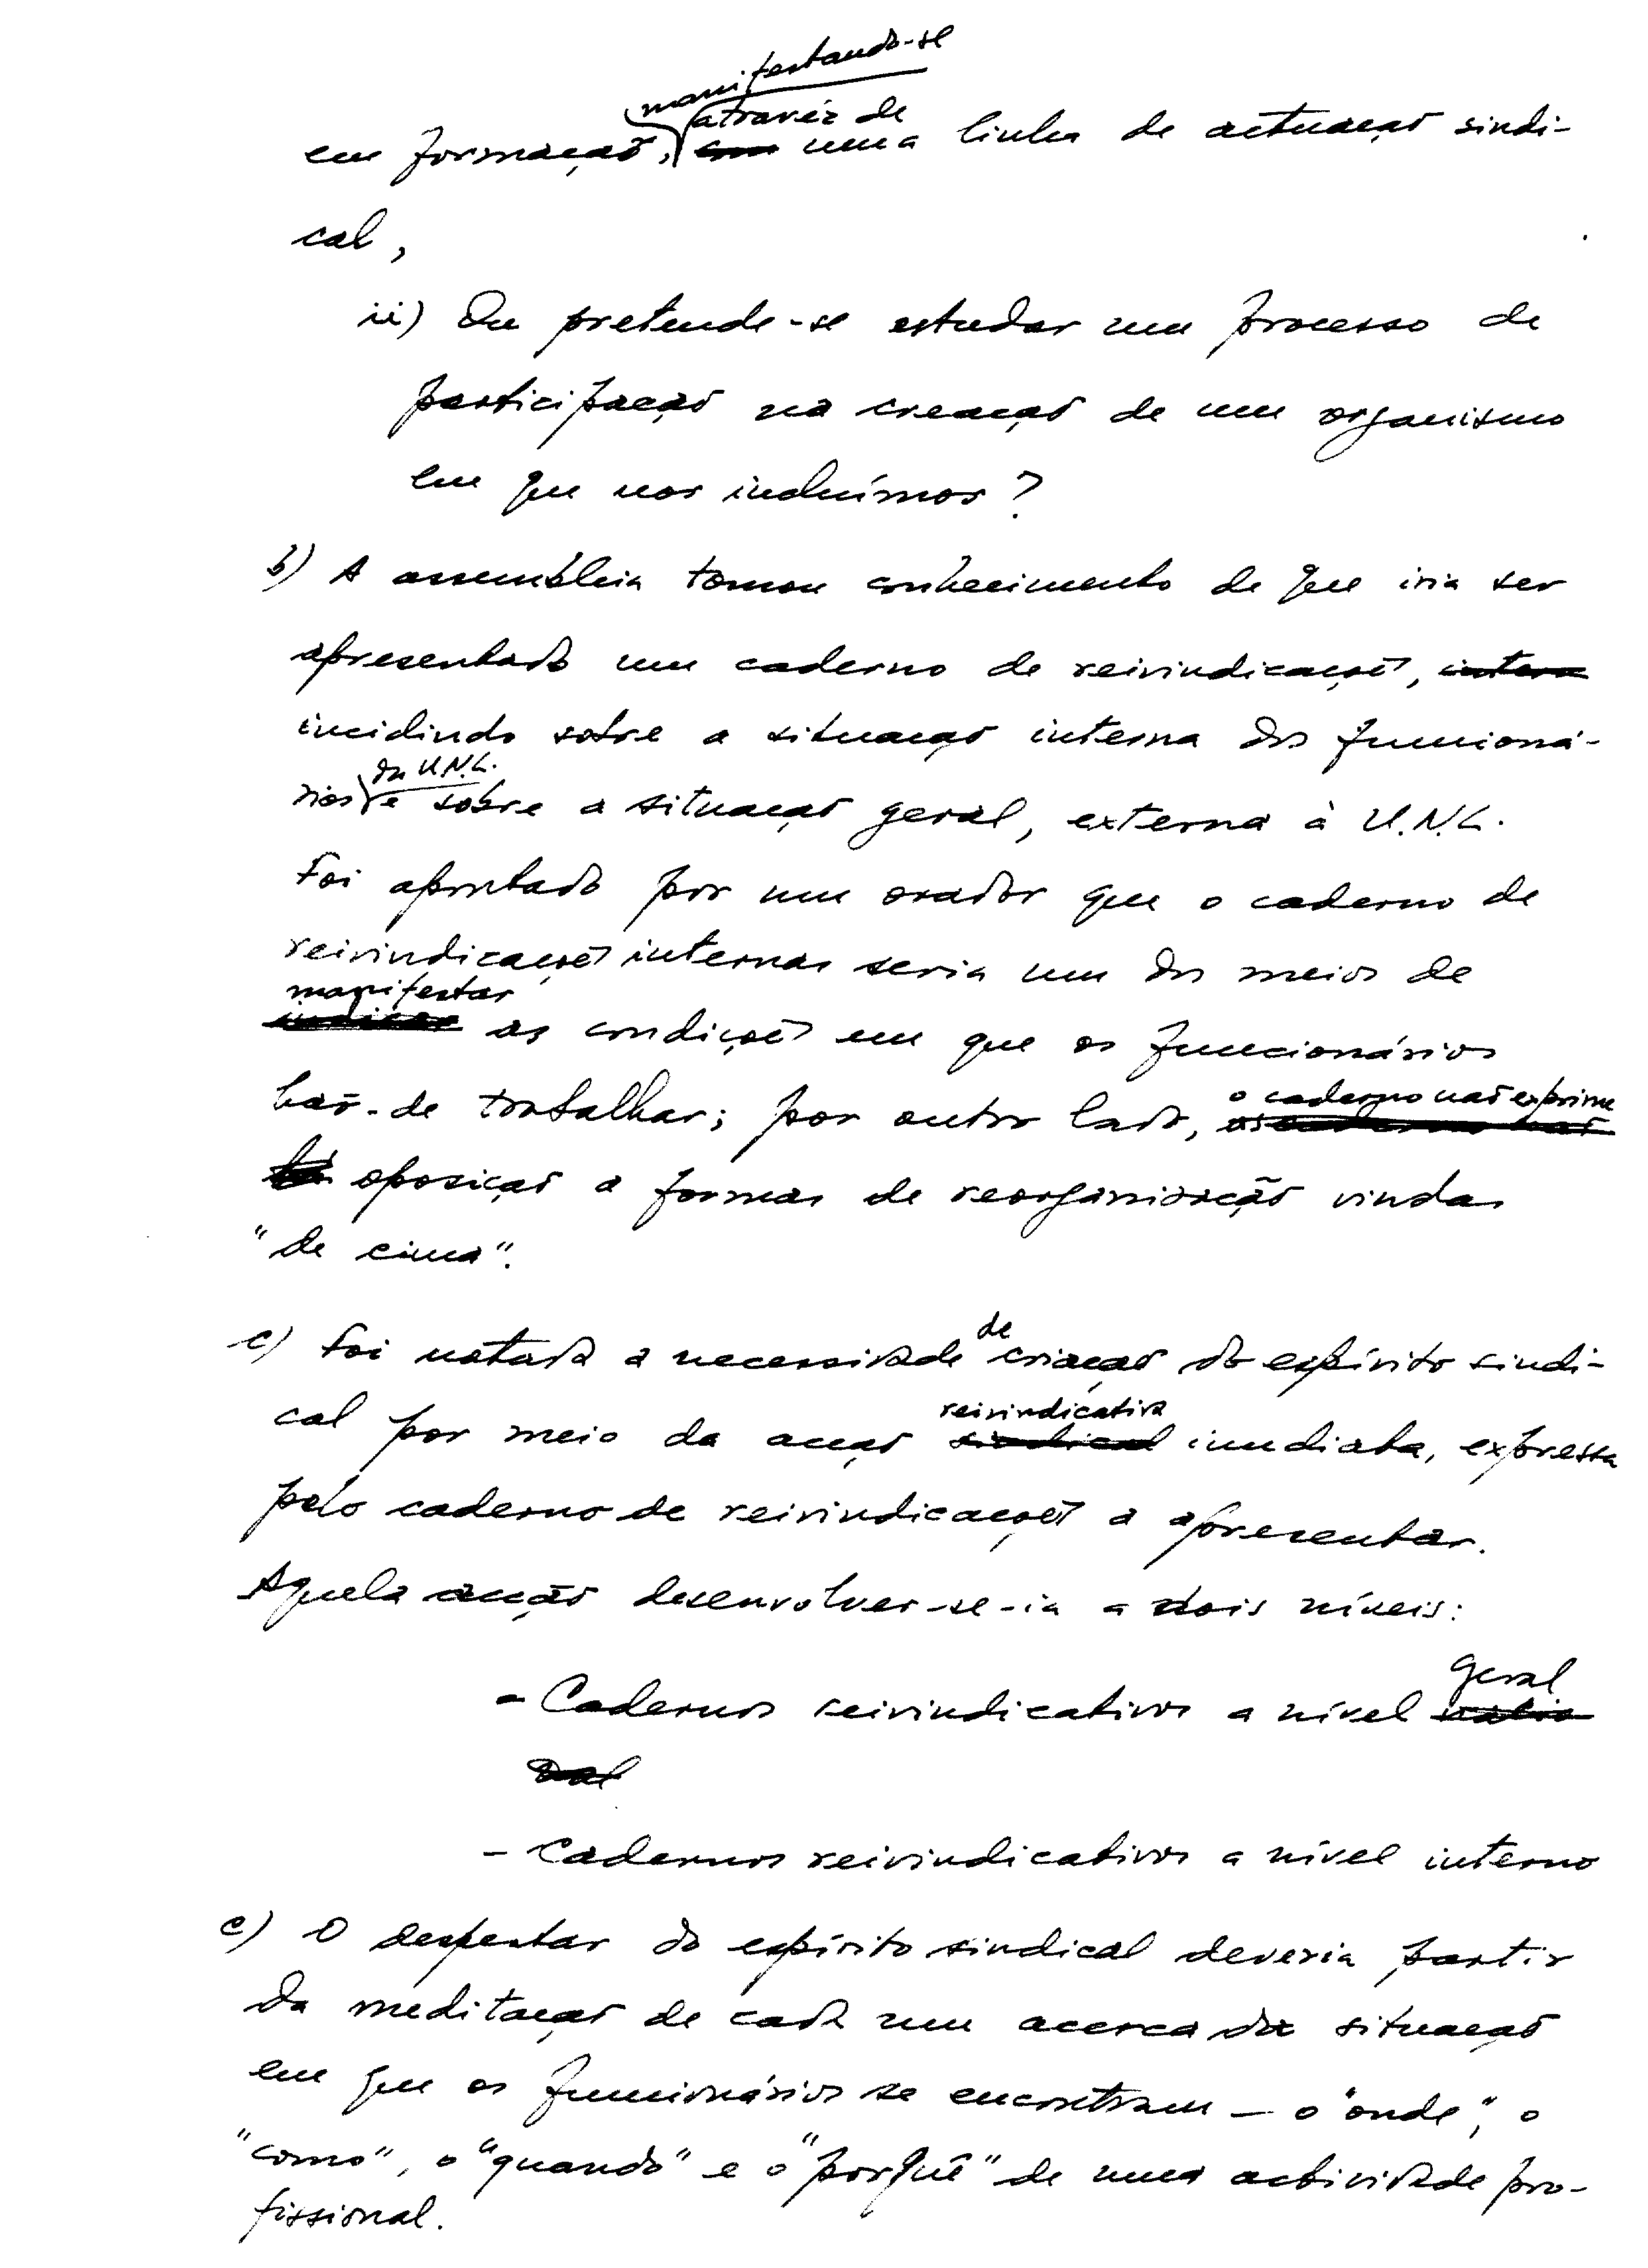 manifestando-se
através de
em formação, com uma linha de actuação sindi-
cal,
ii) Ou pretende-se estudar um processo de
participação na creação de um organismo
em que nos incluímos?
b) A assembleia tomou conhecimento de que iria ser
apresentado um caderno de reivindicações, intern
incidindo sobre a situação interna dos funcioná-
da U.N.L.
rios e sobre a situação geral, externa à U.N.L.
Foi apontado por um orador que o caderno de
reivindicações internas seria um dos meios de
manifestar
indicar as condições em que os funcionários
o caderno não exprime
hão-de trabalhar; por outro lado, caderno não
há oposição a formas de reorganização vindas
"de cima".
de
c) Foi notada a necessidade criação do espírito sindi-
reivindicativa
cal por meio da acção sindical imediata, expressa
pelo caderno de reivindicações a apresentar.
Aquela acção desenvolver-se-ia a dois níveis:
geral
- Cadernos reivindicativos a nível nacio
nal
- Cadernos reivindicativos a nível interno
c) O despertar do espírito sindical deveria partir
da meditação de cada um acerca da situação
em que os funcionários se encontram – o "onde", o
"como", o "quando" e o "porquê" de uma actividade pro-
fissional.